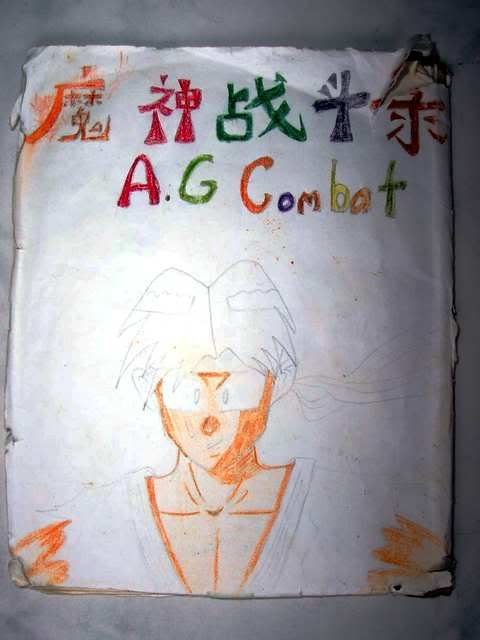 魔神战斗
A.G Combat